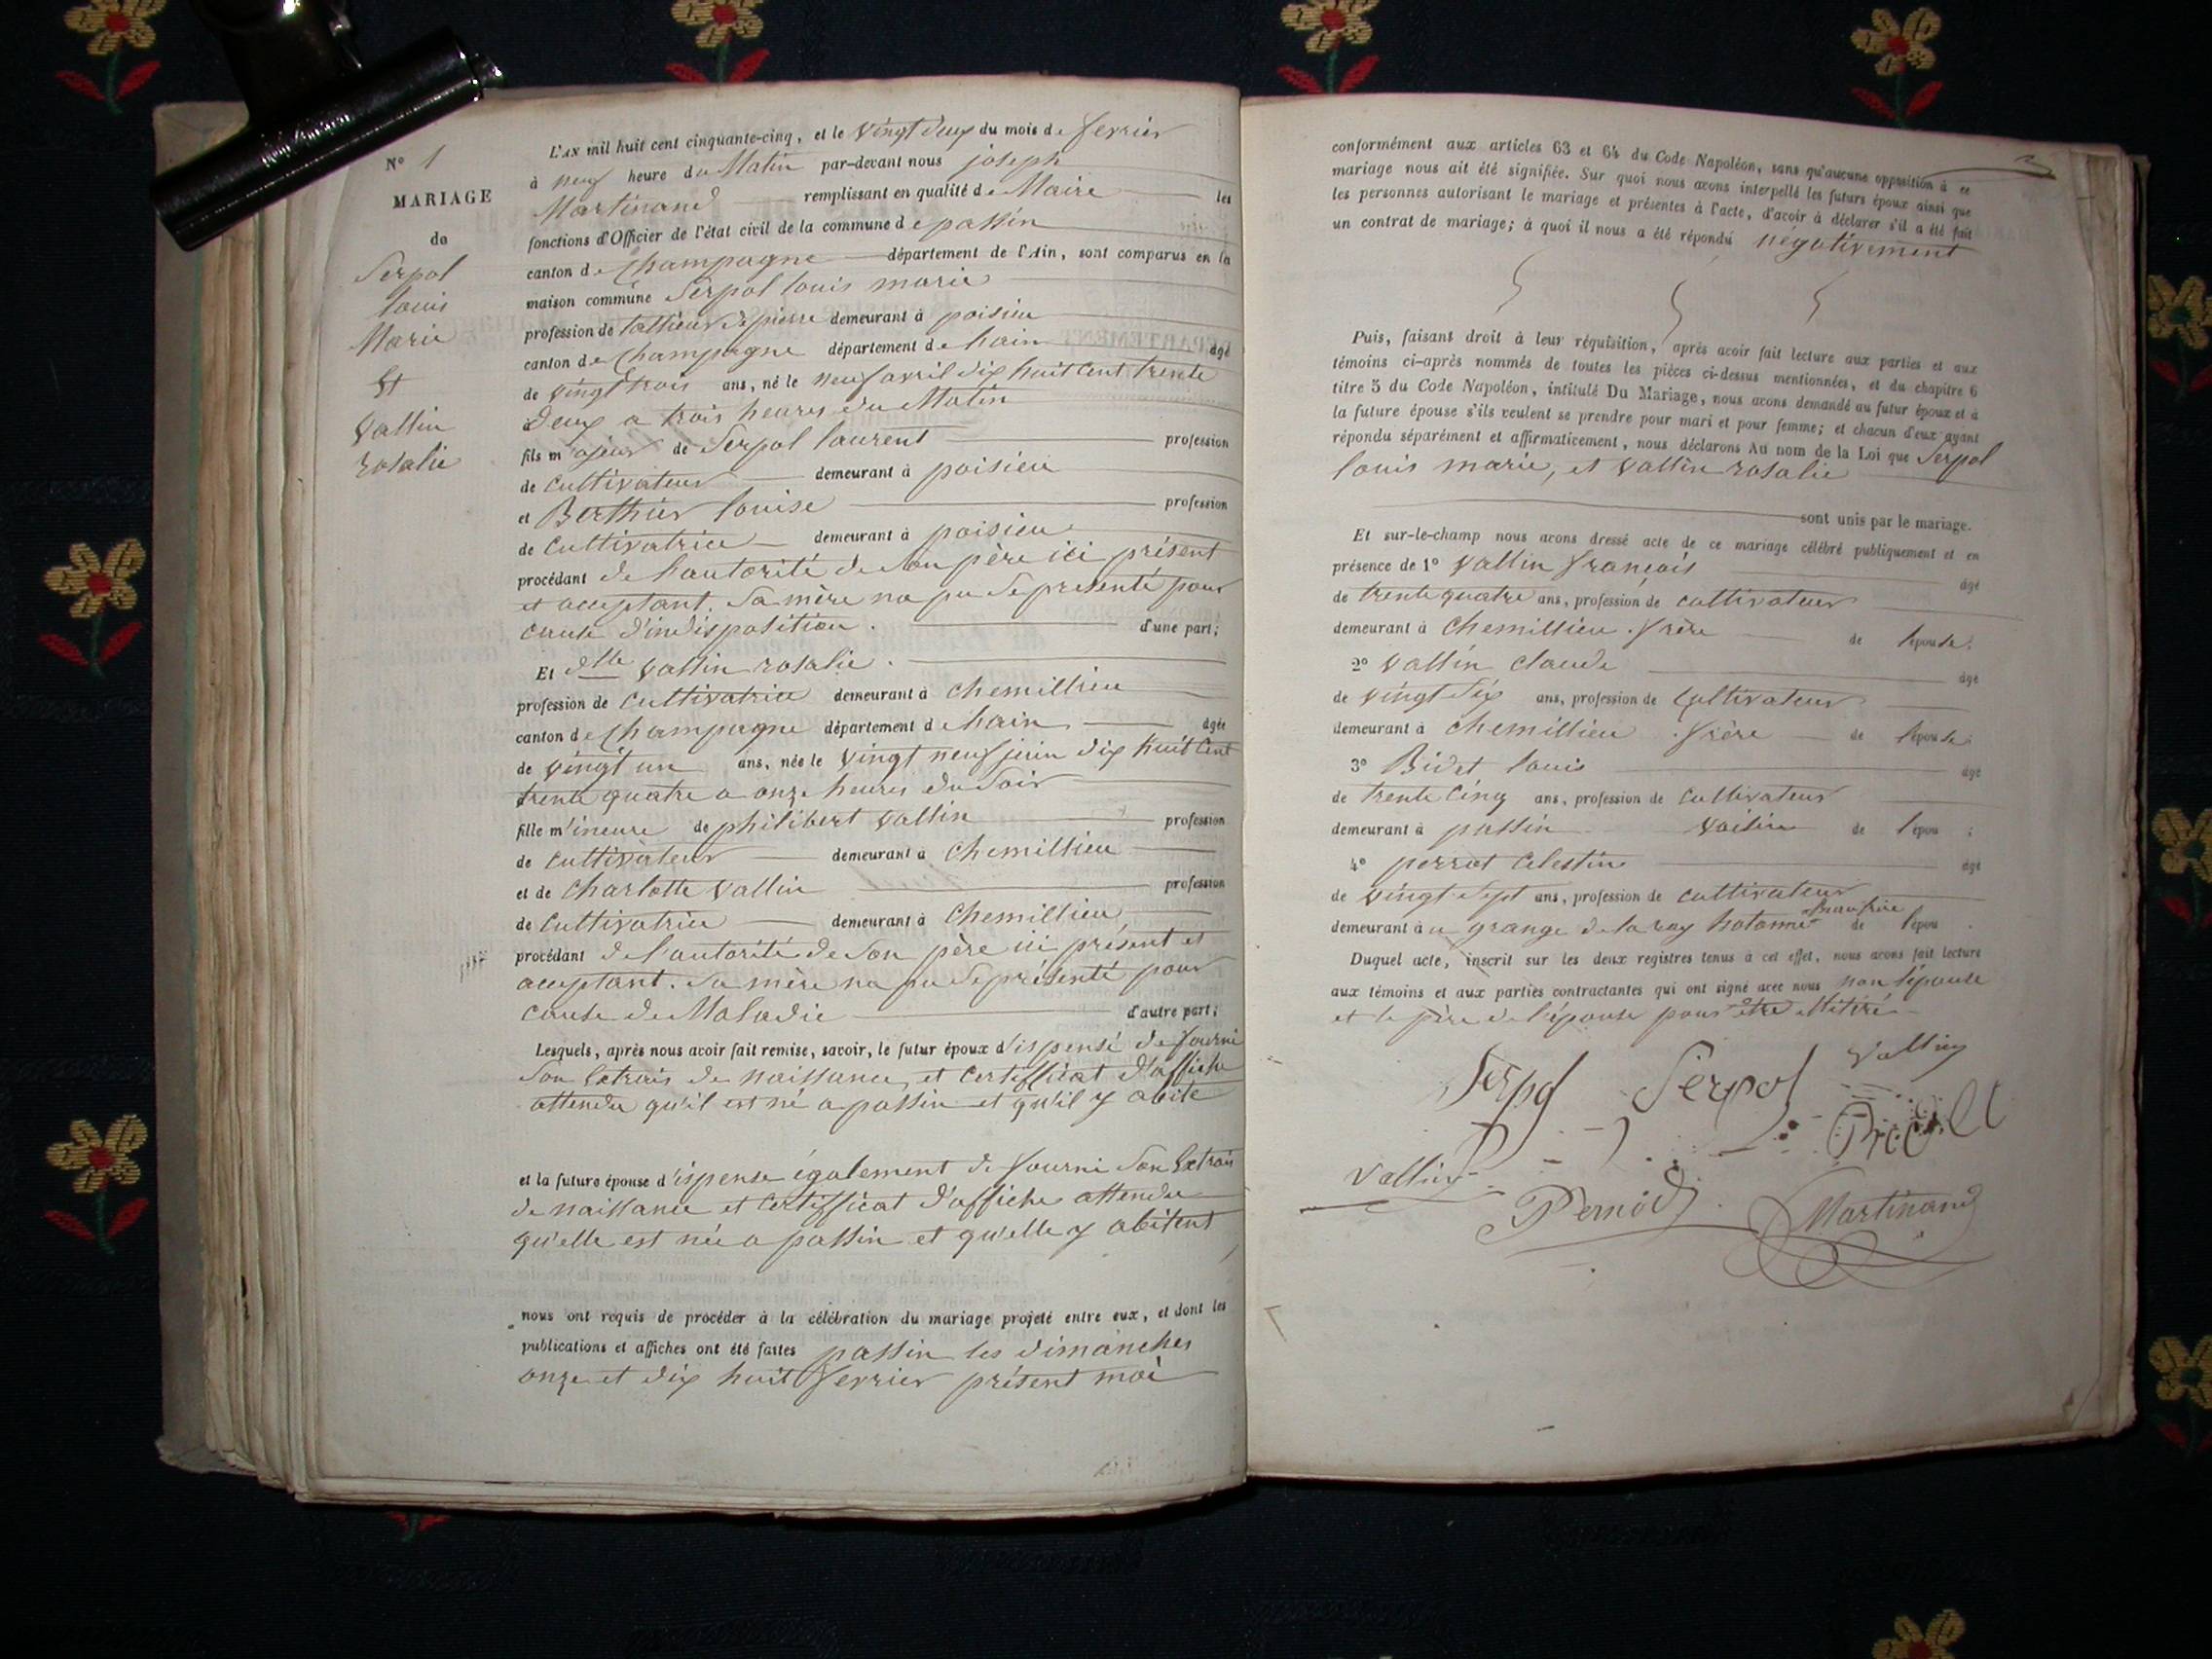 N° 1
MARIAGE
de
Serpol
louis
Marie
Et
Vallin
rosalie
L'AN mil huit cent cinquante-cinq, et le vingt deux du mois de fevrier
à neuf heure du Matin par-devant nous joseph
Martinand remplissant en qualité de Maire les
fonctions d'Officier de l'état civil de la commune de passin
canton de Champagne département de l'Ain, sont comparus en la
maison commune Serpol louis marie
profession de tallieur de pierre demeurant à poisieu
canton de Champagne département de hain âgé
de vingt trois ans, né le neuf avril dix huit cent trente
deux a trois heures du Matin
fils majeur de Serpol laurent profession
de cultivateur demeurant à poisieu
et Berthier louise profession
de cultivatrice demeurant à poisieu
procédant de hautorité de son père ici présent
et acceptant. Sa mère na pu se presenté pour
cause d'indisposition. d'une part;
Et dlle Vallin rosalie.
profession de cultivatrice demeurant à chemillieu
canton de Champagne département de hain âgée
de vingt un ans, née le vingt neuf juin dix huit Cent
trente quatre a onze heures du Soir
fille m'ineure de philibert Vallin profession
de cultivateur demeurant à chemillieu
et de Charlotte Vallin profession
de cultivatrice demeurant à Chemillieu
procédant de l'autorité de Son père ici présent et
acceptant. Sa mère na pu se présenté pour
cause de Maladie d'autre part;
Lesquels, après nous avoir fait remise, savoir, le futur époux d'ispensé de fourni
Son Extrais de naissance et certifficat d'affiche
attendu qu'il est né a passin et qu'il y abite
et la future épouse d'ispense également de fourni Son Extrais
de naissance et certifficat d'affiche attendu
qu'elle est née a passin et qu'elle y abitent
nous ont requis de procéder à la célébration du mariage projeté entre eux, et dont les
publications et affiches ont été faites passin les dimanches
onze et dix huit fevrier présent moi
conformément aux articles 63 et 64 du Code Napoléon, sans qu'aucune opposition à ce
mariage nous ait été signifiée. Sur quoi nous avons interpellé les futurs époux ainsi que
les personnes autorisant le mariage et présentes à l'acte, d'avoir à déclarer s'il a été fait
un contrat de mariage; à quoi il nous a été répondu négativement
Puis, faisant droit à leur réquisition, après avoir fait lecture aux parties et aux
témoins ci-après nommés de toutes les pièces ci-dessus mentionnées, et du chapitre 6
titre 5 du Code Napoléon, intitulé Du Mariage, nous avons demandé au futur époux et à
la future épouse s'ils veulent se prendre pour mari et pour femme; et chacun d'eux ayant
répondu séparément et affirmativement, nous déclarons Au nom de la Loi que Serpol
louis marie, et Vallin rosalie
sont unis par le mariage.
Et sur-le-champ nous avons dressé acte de ce mariage célébré publiquement et en
présence de 1° Vallin françois âgé
de trente quatre ans, profession de cultivateur
demeurant à Chemillieu. frère de l'épouse;
2° Vallin claude âgé
de vingt Six ans, profession de Cultivateur
demeurant à chemillieu frère de l'épouse;
3° Bidet louis âgé
de trente Cinq ans, profession de Cultivateur
demeurant à passin voisin de l'épou ;
4° perrot Celestin âgé
de vingt Sept ans, profession de cultivateur
demeurant à a grange de la ray hotonne de l'épou .
Duquel acte, inscrit sur les deux registres tenus à cet effet, nous avons fait lecture
aux témoins et aux parties contractantes qui ont signé avec nous non l'épouse
et le père de l'épouse pour être illitiré
Serpol Serpol Vallin
Vallin
Martinand